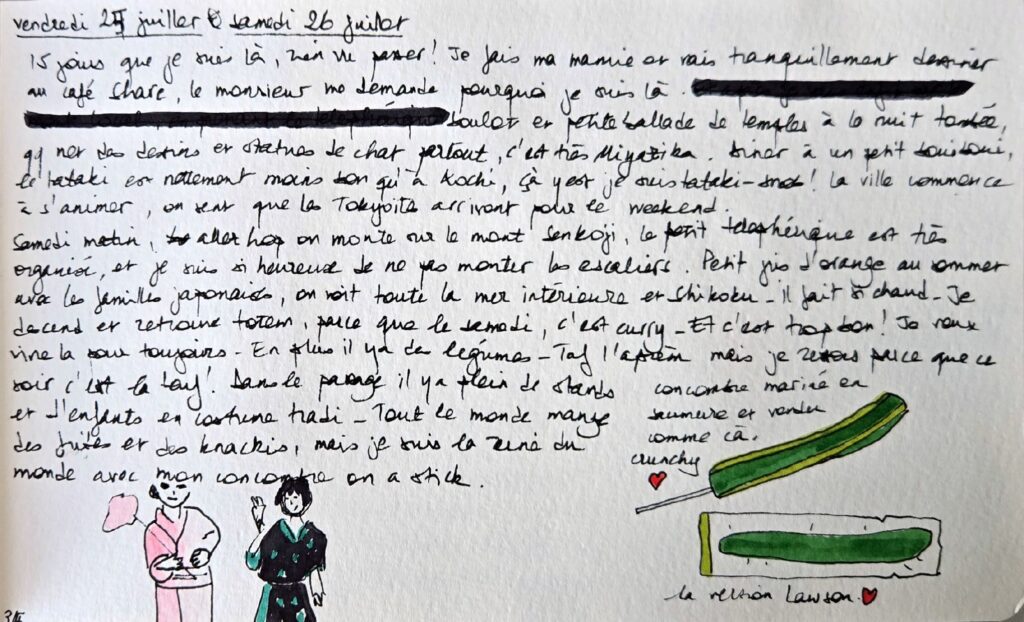 vendredi 25 juillet & samedi 26 juillet
15 jours que je suis là, rien vu passer! Je fais ma mamie et vais tranquillement dessiner
au café Share, le monsieur me demande pourquoi je suis là.
boulot et petite ballade de temples à la nuit tombée,
des dessins et statues de chat partout, c'est très Miyazika. Diner à un petit bouiboui,
le tataki est nettement moins bon qu'à Kochi, çà y est je suis tataki-snob! La ville commence
à s'animer, on sent que les Tokyoïte arrivent pour le weekend.
Samedi matin, aller hop on monte sur le mont Senkoji, le petit telephérique est très
organisé, et je suis si heureuse de ne pas monter les escaliers. Petit jus d'orange au sommet
avec les familles japonaises, on voit toute la mer intérieure et Shikoku - il fait si chaud - Je
descend et retrouve totem, parce que le samedi, c'est curry - Et c'est trop bon! Je veux
vivre la pour toujours - En plus il y a des légumes - Taf l'aprèm mais je ressors parce que ce
soir c'est la teuf! Dans le passage il y a plein de stands
et d'enfants en costume tradi - Tout le monde mange
des frites et des knackis, mais je suis la reine du
monde avec mon concombre on a stick.
concombre mariné en
saumure et vendu
comme çà.
crunchy
la version Lawson.